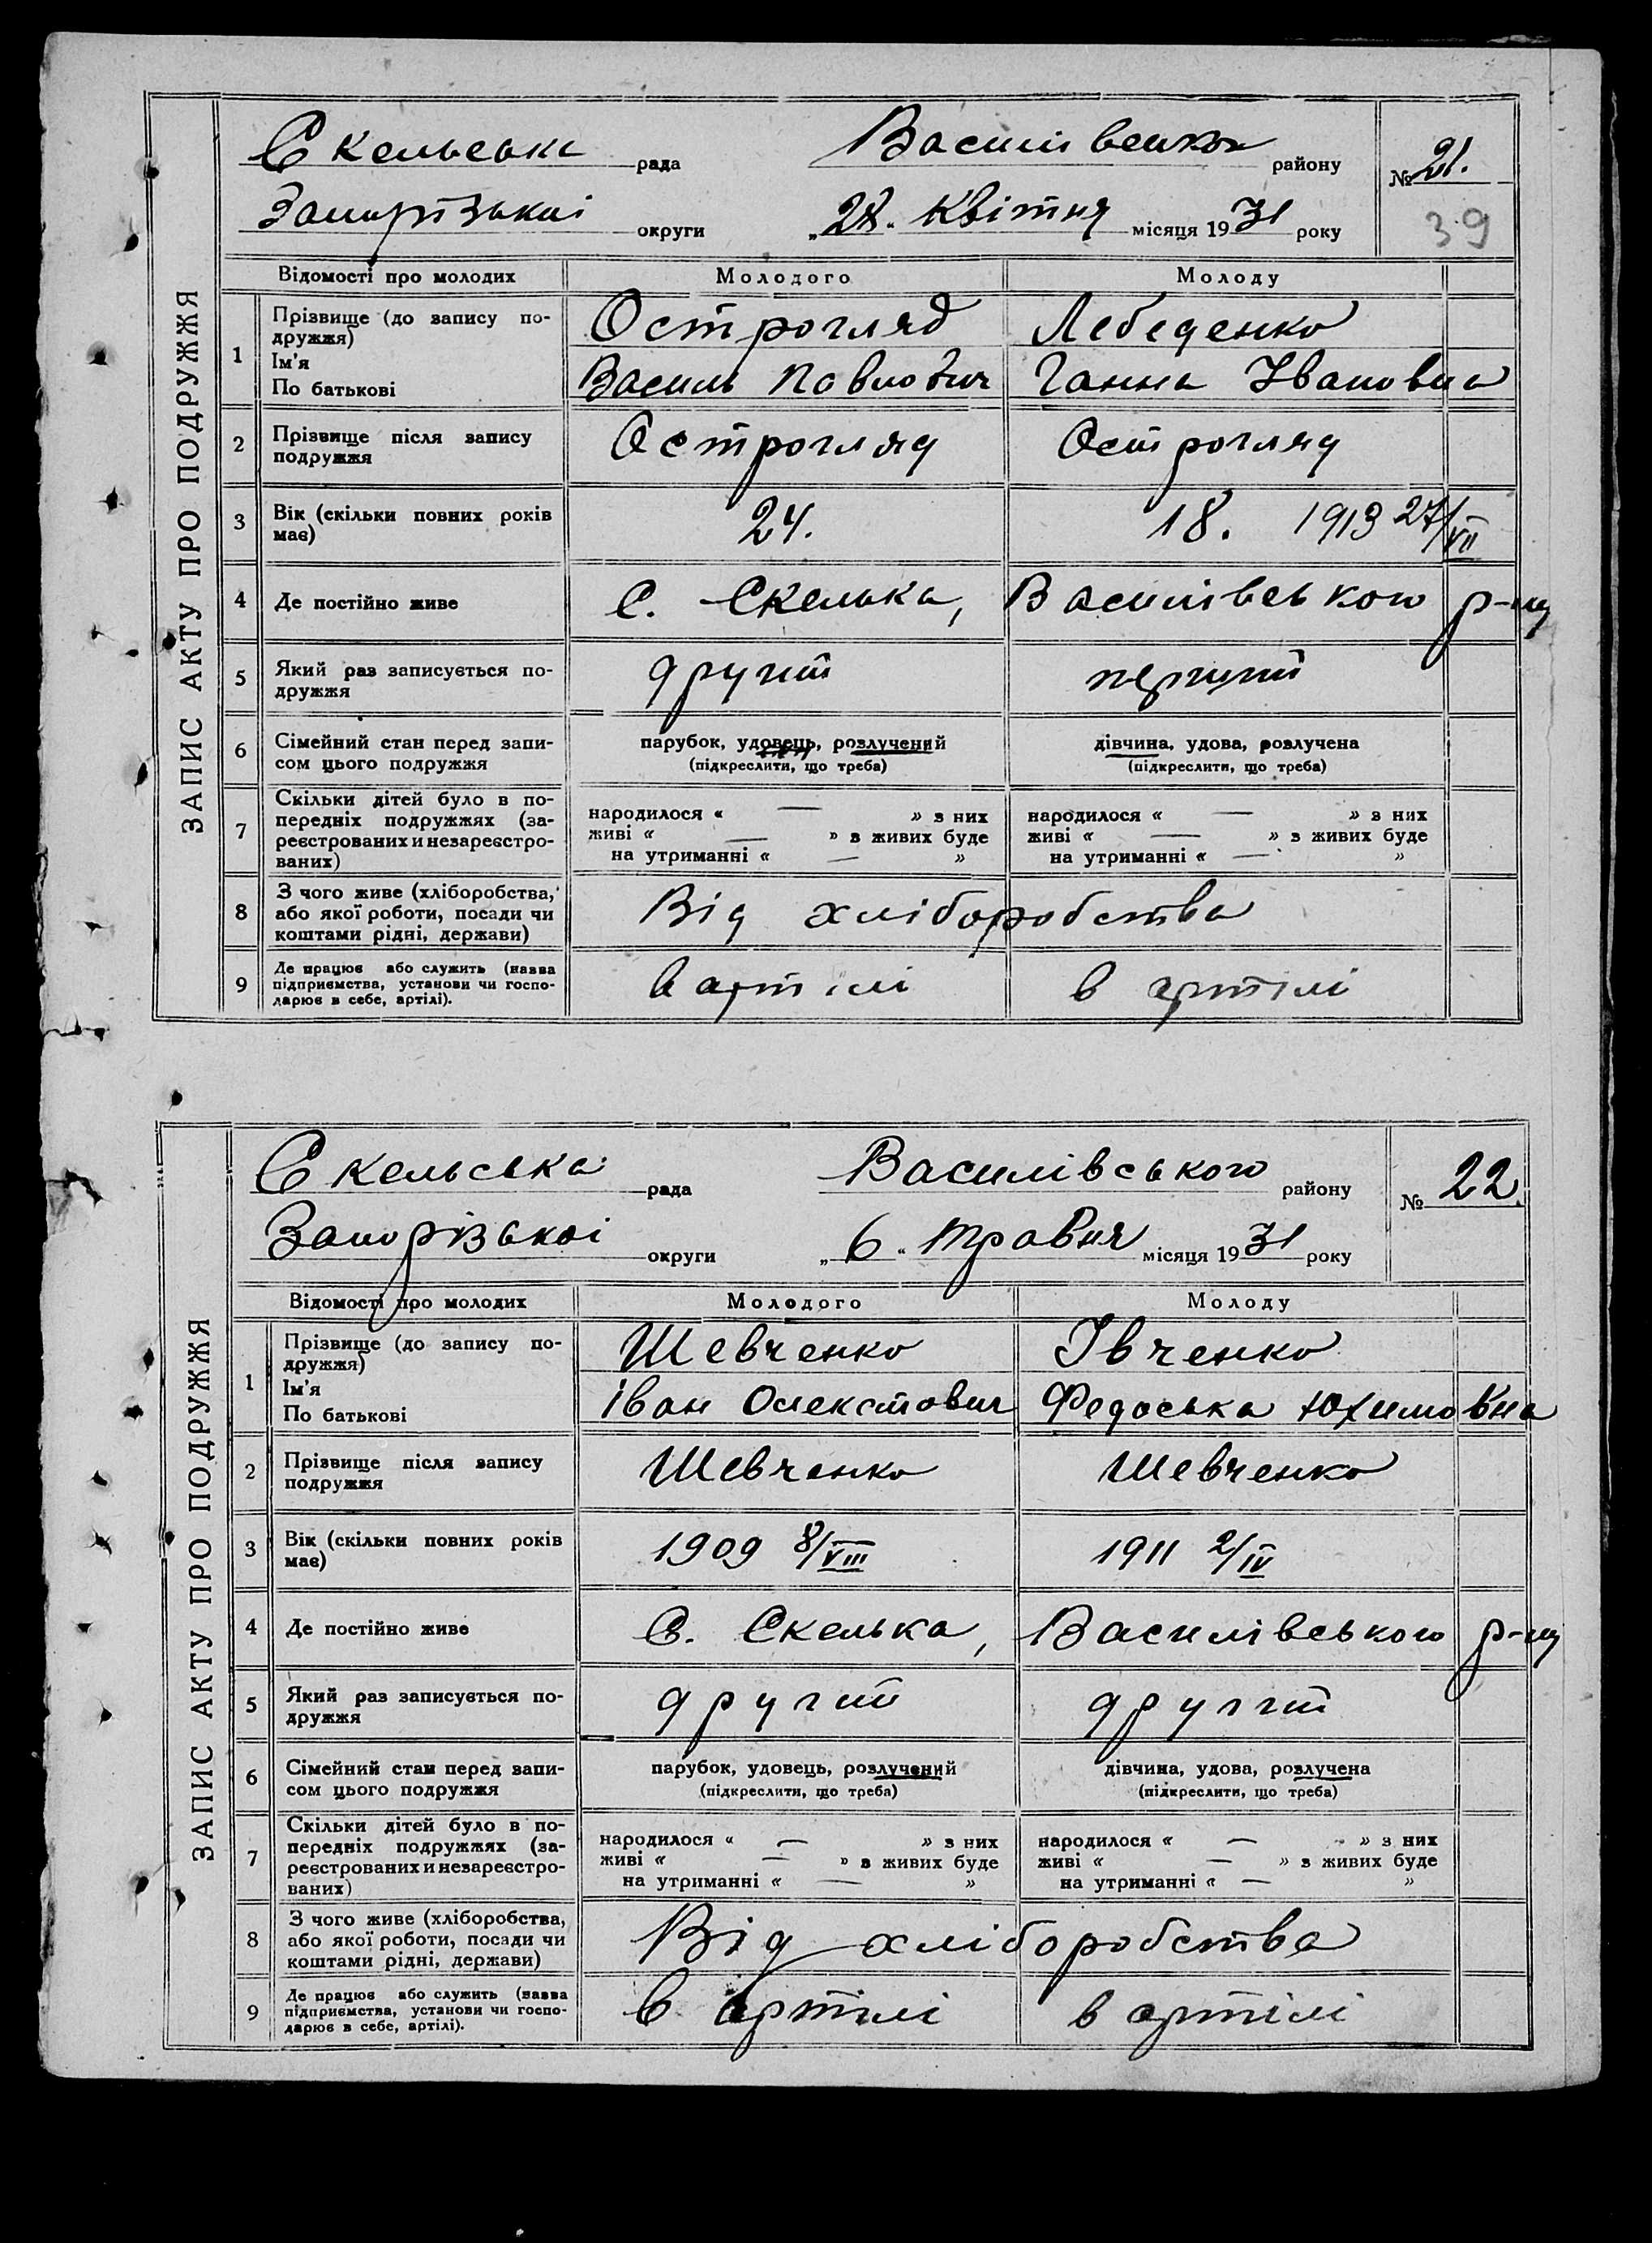 ЗАПИС АКТУ ПРО ПОДРУЖЖЯ
Скельська рада Василівського району № 21.
Запорізької округи „28“ Квітня місяця 1931 року 39
Відомості про молодих Молодого Молоду
1 Прізвище (до запису по-
дружжя) Остогляд Лебеденко
Ім'я
По батькові Василь Павлович Ганна Івановна
2 Прізвище після запису
подружжя Острогляд Острогляд
3 Вік (скільки повних років
має) 24. 18. 1913 27/VII
4 Де постійно живе С. Скелька, Василівського р-ну
5 Який раз записується по-
дружжя другий перший
6 Сімейний стан перед запи-
сом цього подружжя
парубок, удовець, розлучений дівчина, удова, розлучена
(підкреслити, що треба) (підкреслити, що треба)
7 Скільки дітей було в по-
передніх подружжях (за-
реєстрованих и незареєстро-
ваних)
народилося « — » з них народилося « — » з них
живі « — » з живих буде живі « — » з живих буде
на утриманні « — » на утриманні « — »
8 З чого живе (хліборобства,
або якої роботи, посади чи
коштами рідні, держави) Від хліборобства
9 Де працює або служить (назва
підприємства, установи чи госпо-
дарює в себе, артілі). в артілі в артілі
ЗАПИС АКТУ ПРО ПОДРУЖЖЯ
Скельська рада Василівського району № 22.
Запорізької округи „6“ травня місяця 1931 року
Відомості про молодих Молодого Молоду
1 Прізвище (до запису по-
дружжя) Шевченко Івченко
Ім'я
По батькові Іван Федоська Юхимовна
2 Прізвище після запису
подружжя Шевченко Шевченко
3 Вік (скільки повних років
має) 1909 8/VIII 1911 2/IV
4 Де постійно живе С. Скелька, Василівського р-ну
5 Який раз записується по-
дружжя другий другий
6 Сімейний стан перед запи-
сом цього подружжя
парубок, удовець, розлучений дівчина, удова, розлучена
(підкреслити, що треба) (підкреслити, що треба)
7 Скільки дітей було в по-
передніх подружжях (за-
реєстрованих и незареєстро-
ваних)
народилося « — » з них народилося « — » з них
живі « — » з живих буде живі « — » з живих буде
на утриманні « — » на утриманні « — »
8 З чого живе (хліборобства,
або якої роботи, посади чи
коштами рідні, держави) Від хліборобства
9 Де працює або служить (назва
підприємства, установи чи госпо-
дарює в себе, артілі). в артілі в артілі